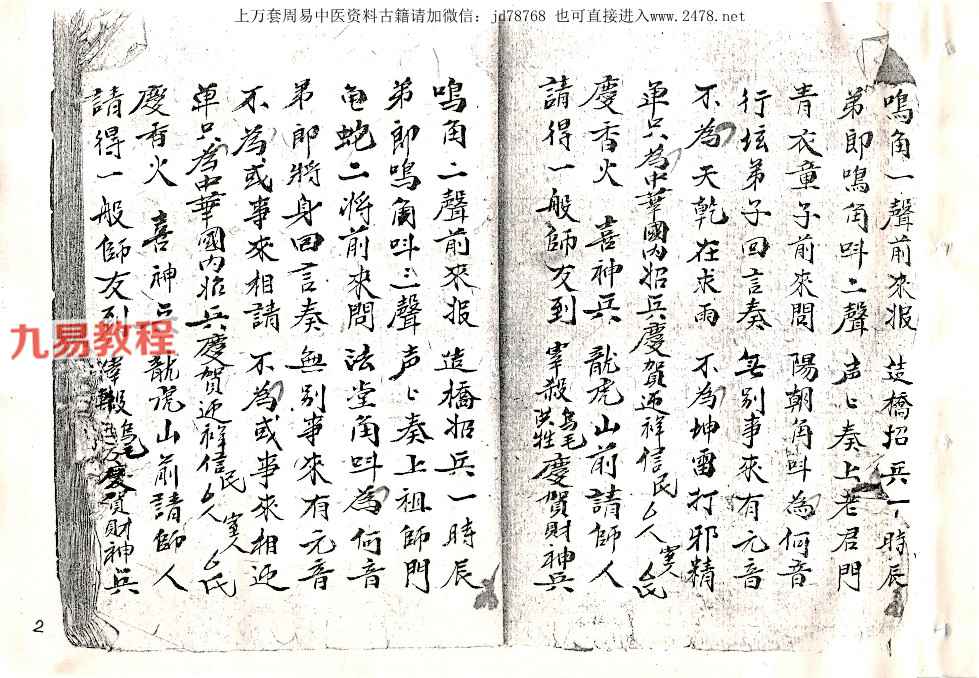 上万套周易中医资料古籍请加微信：jd78768 也可直接进入www.2478.net
鳴角一聲前來报 造橋招兵一時辰
弟郎鳴角呌二聲 声匕奏上老君門
青衣童子前來問 陽朝角呌為何音
行坛弟子回言奏 無別事來有元音
不為天乾在求雨 不為坤雷打邪精
单只為中華國内招兵慶賀迎祥信民厶人 室人厶氏
慶香火 喜神兵 龍虎山前請師人
請得一般師友到 宰殺烏毛洪牲慶賀財神兵
鳴角二聲前來报 造橋招兵一時辰
弟郎鳴角呌三聲 声匕奏上祖師門
龟蛇二将前來問 法堂角呌為何音
弟郎將身回言奏 無別事來有元音
不為或事來相請 不為或事來相迎
单只為中華國内招兵慶賀迎祥信民厶人 室人厶氏
慶香火 喜神兵 龍虎山前請師人
請得一般師友到 烏毛 慶賀財神兵
九易教程
2